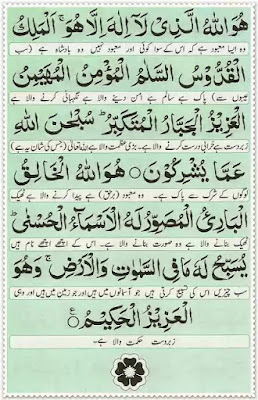 هُوَ اللهُ الَّذِیْ لَآ اِلٰهَ اِلَّا هُوَ ۚ اَلْمَلِكُ
وہ ایسا معبود ہے کہ اس کے سوا کوئی اور معبود نہیں وہ بادشاہ ہے (سب
الْقُدُّوْسُ السَّلٰمُ الْمُؤْمِنُ الْمُهَیْمِنُ
عیبوں سے) پاک ہے سالم ہے امن دینے والا ہے نگہبانی کرنے والا ہے
الْعَزِیْزُ الْجَبَّارُ الْمُتَكَبِّرُ ؕ سُبْحٰنَ اللهِ
زبردست ہے خرابی درست کرنے والا ہے۔ بڑی عظمت والا ہے اللہ تعالیٰ (جس کی شان یہ ہے)
عَمَّا یُشْرِكُوْنَ ○ هُوَ اللهُ الْخَالِقُ
لوگوں کے شرک سے پاک ہے۔ وہ معبود (برحق) ہے پیدا کرنے والا ہے ٹھیک
الْبَارِئُ الْمُصَوِّرُ لَهُ الْاَسْمَآءُ الْحُسْنٰی ؕ
ٹھیک بنانے والا ہے وہ صورت بنانے والا ہے۔ اس کے اچھے اچھے نام ہیں
یُسَبِّحُ لَهٗ مَا فِی السَّمٰوٰتِ وَالْاَرْضِ ۚ وَهُوَ
سب چیزیں اس کی تسبیح کرتی ہیں جو آسمانوں میں ہیں اور جو زمین میں ہیں اور وہی
الْعَزِیْزُ الْحَكِیْمُ ○ ع
زبردست حکمت والا ہے۔